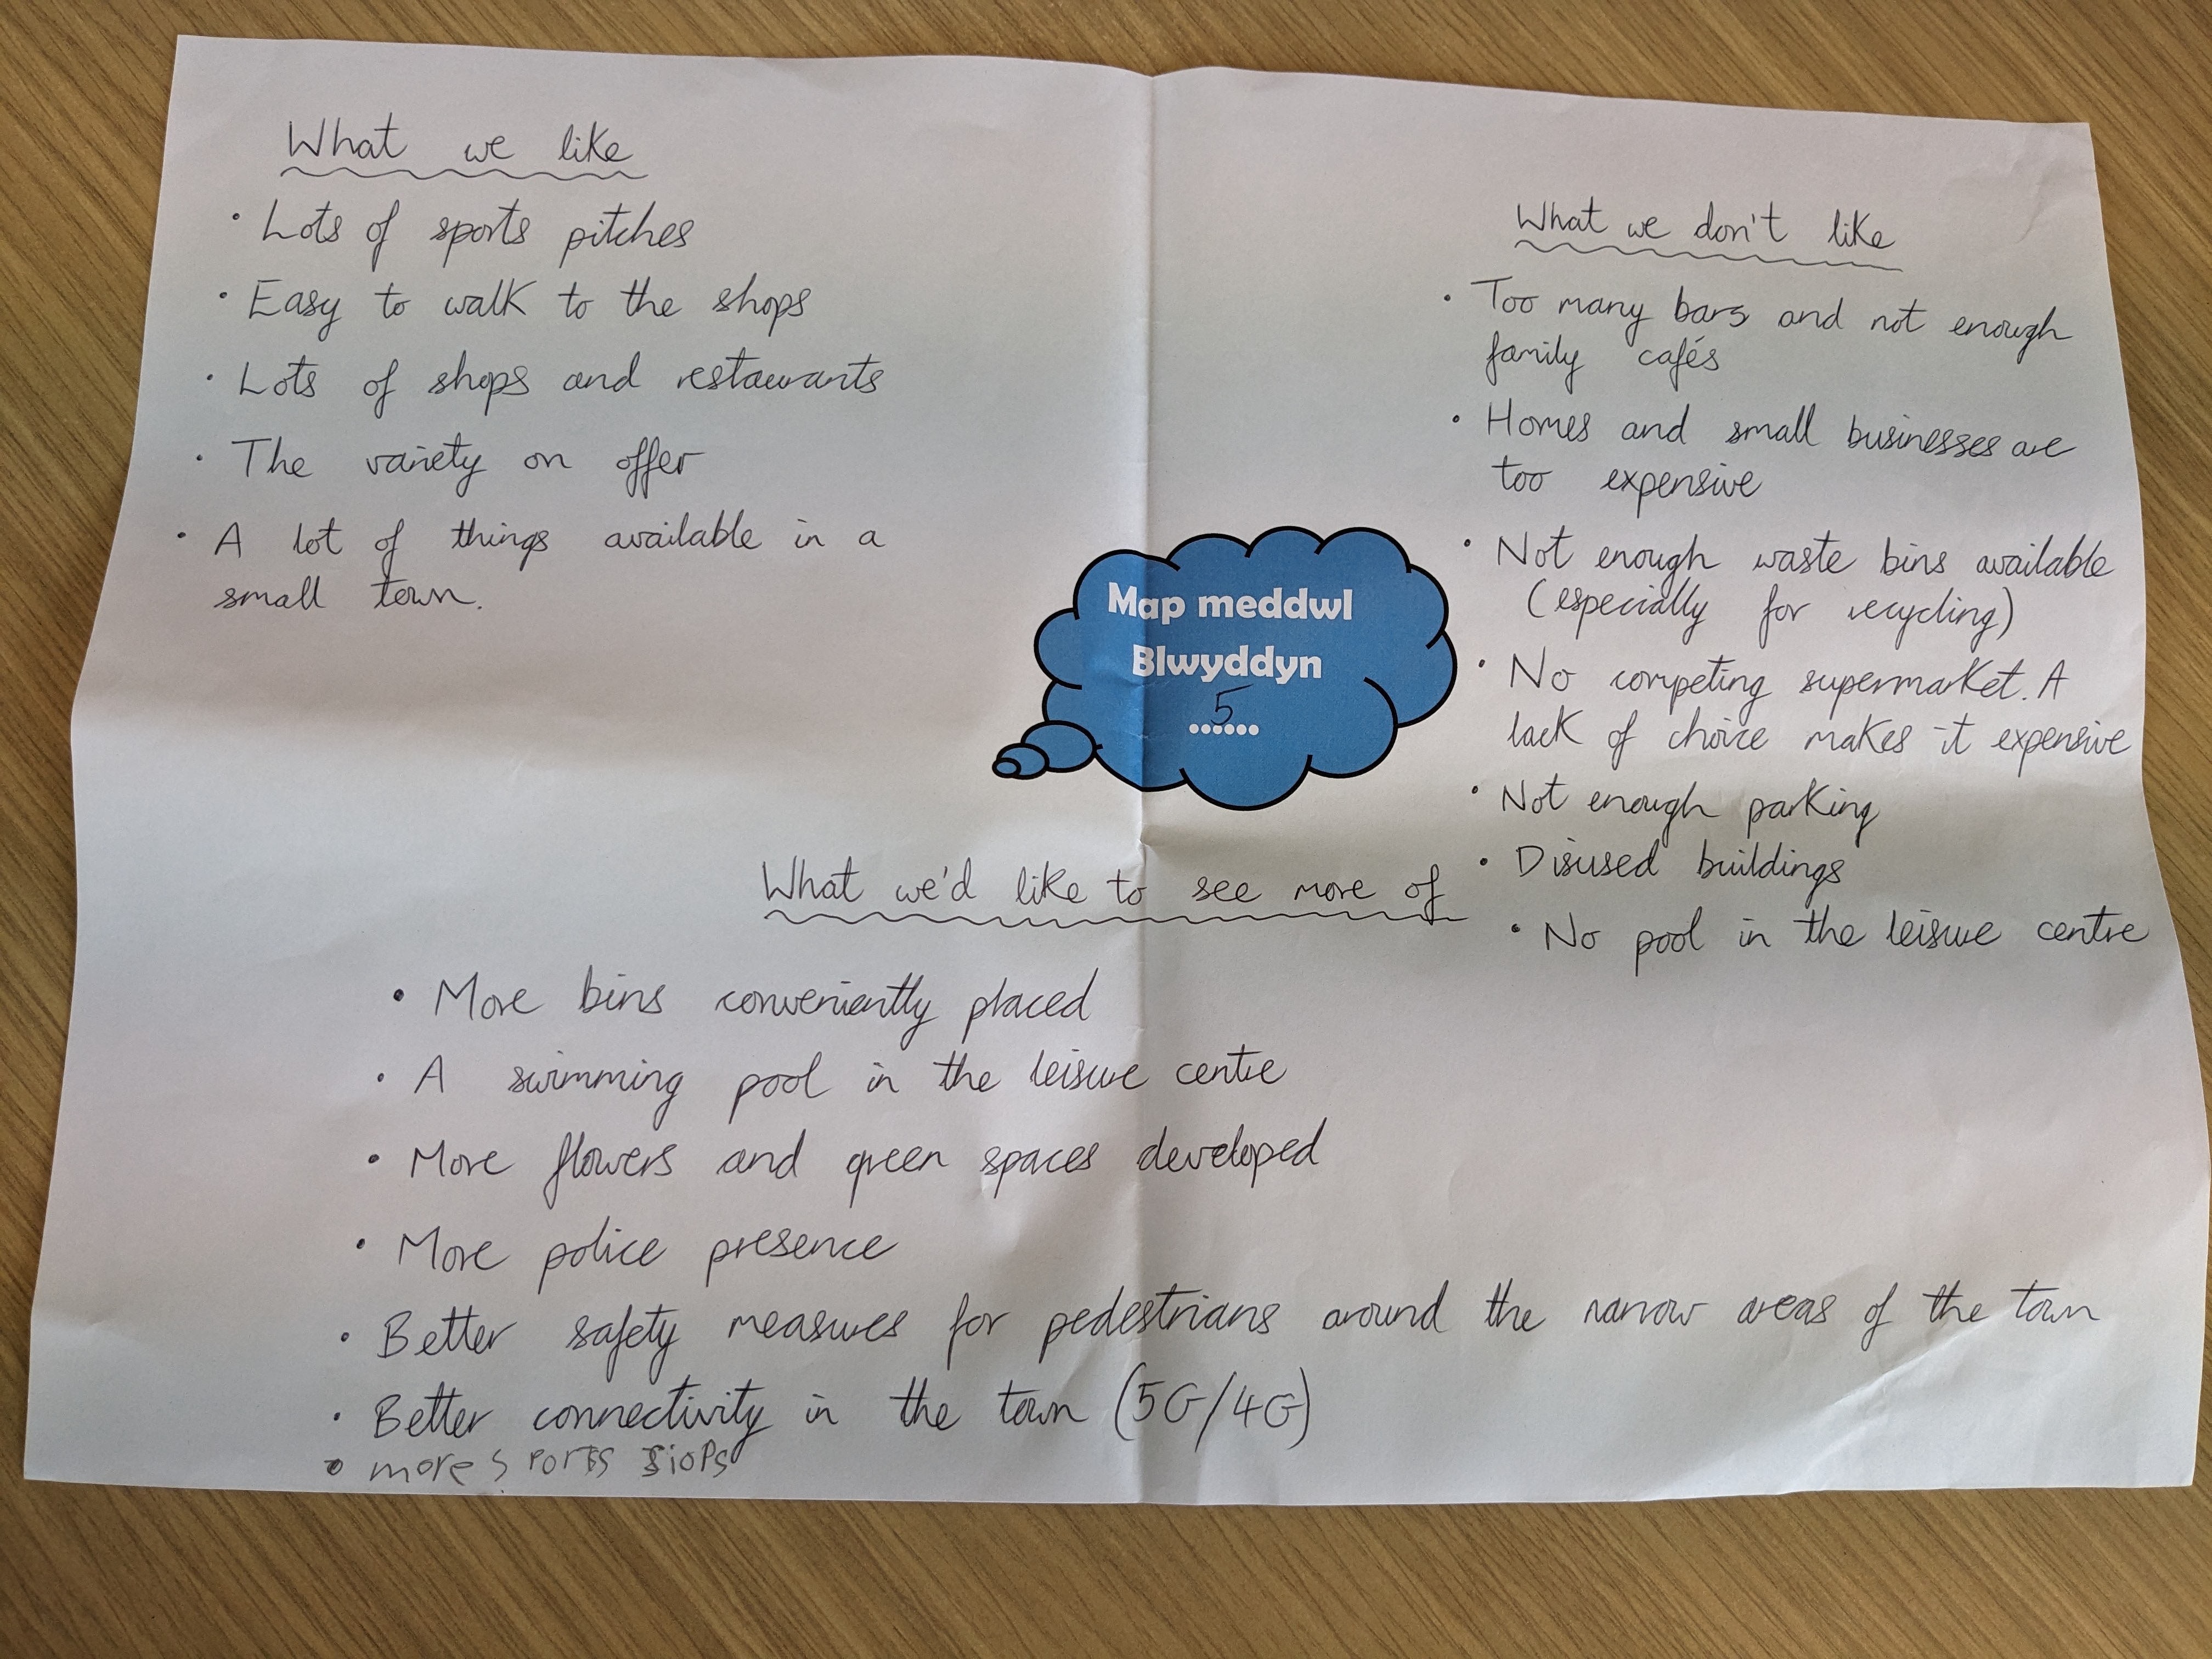 What we like
• Lots of sports pitches
• Easy to walk to the shops
• Lots of shops and restaurants
• The variety on offer
• A lot of things available in a
small town.
What we don't like
• Too many bars and not enough
family cafés
• Homes and small businesses are
too expensive
• Not enough waste bins available
(especially for recycling)
• No competing supermarket. A
lack of choice makes it expensive
• Not enough parking
• Disused buildings
• No pool in the leisure centre
Map meddwl
Blwyddyn
5
......
What we'd like to see more of
• More bins conveniently placed
• A swimming pool in the leisure centre
• More flowers and green spaces developed
• More police presence
• Better safety measures for pedestrians around the narrow areas of the town
• Better connectivity in the town (5G/4G)
• more sports siops